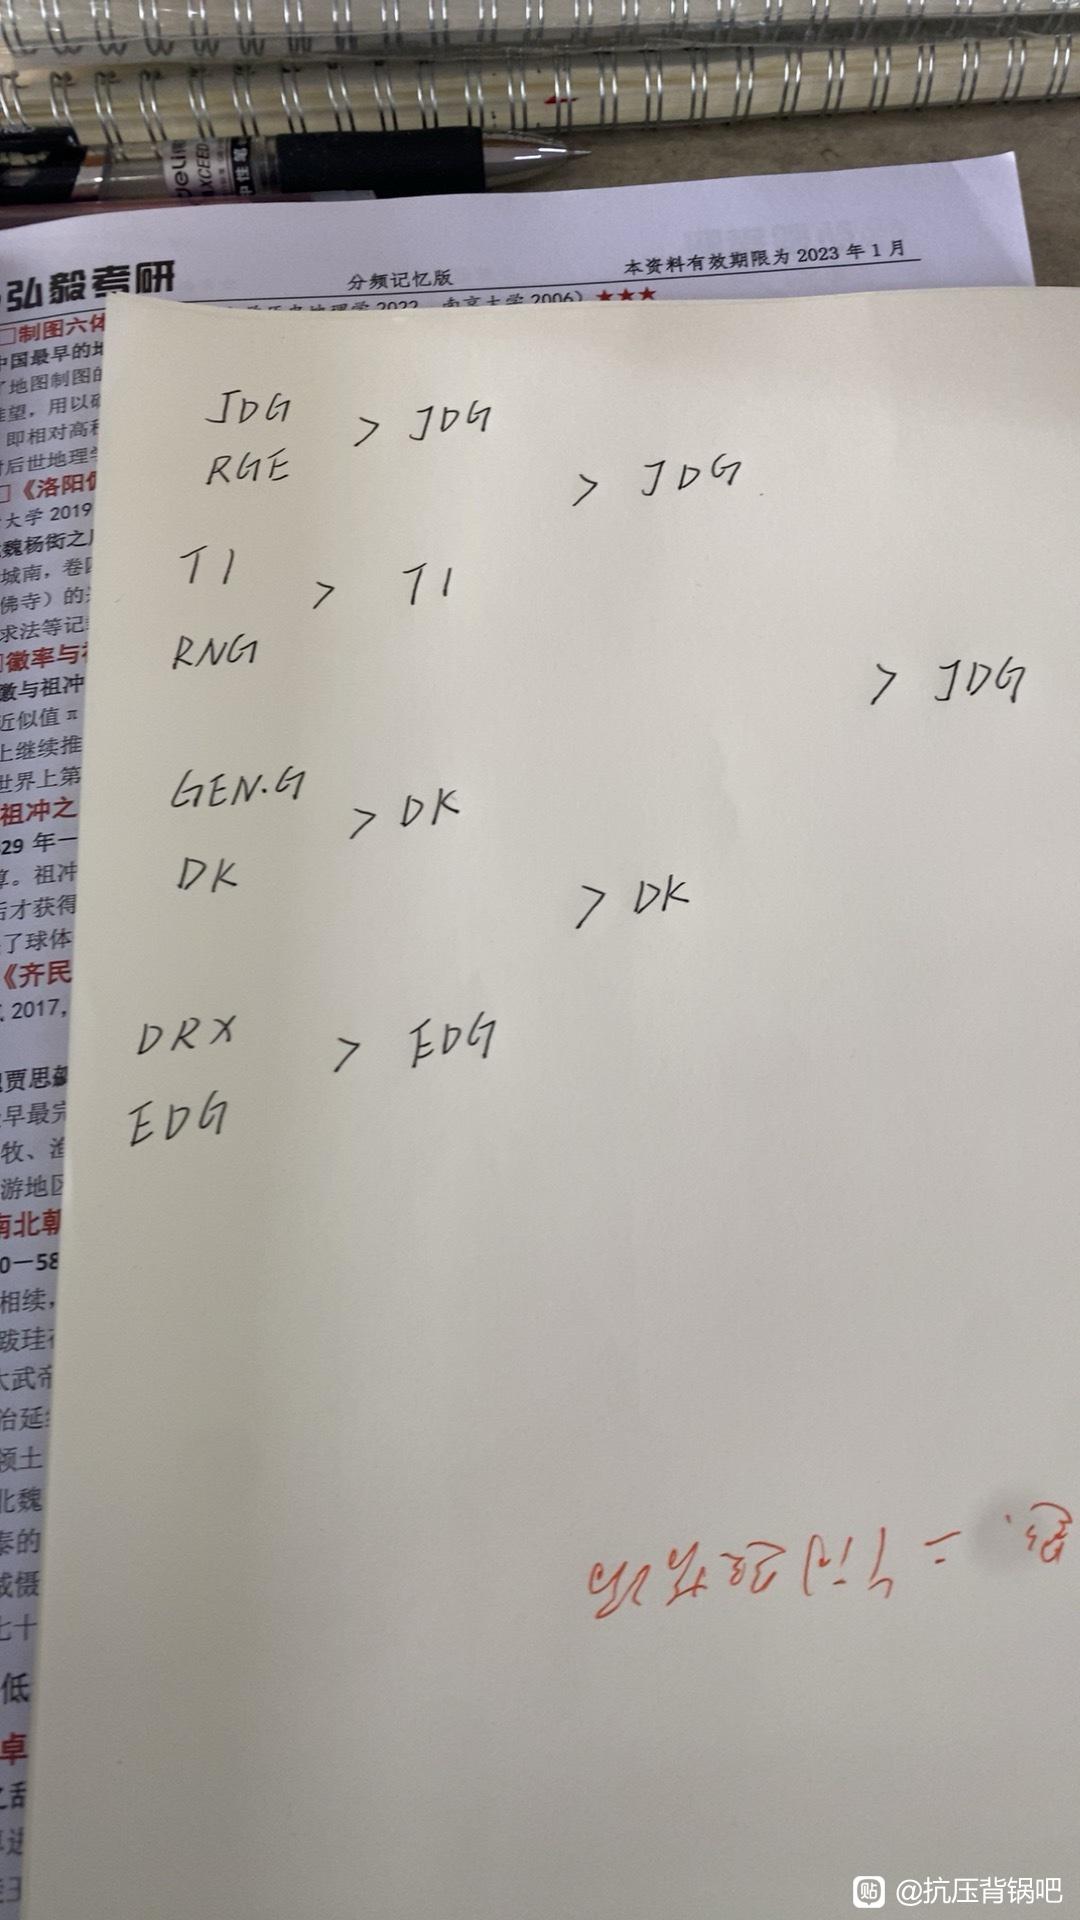 deli
EXCEED
中性笔
弘毅考研
分频记忆版
本资料有效期限为 2023 年 1 月
2022 南京大学 2006）★★★
□制图六体
中国最早的地
了地图制图的
准望，用以确
即相对高程
对后世地理学
□《洛阳
大学 2019
魏杨衒之
城南，卷
佛寺）的
求法等记
徽率与
徽与祖冲
近似值 π
上继续推
世界上第
祖冲之
29 年一
算。祖冲
后才获得
了球体
《齐民
2017，
贾思勰
早最完
牧、渔
游地区
南北朝
0－58
相续，
跋珪
太武帝
治延
领土
北魏
泰的
威慑
七十
低
卓
之乱
JDG
RGE
> JDG
> JDG
T1
RNG
> T1
> JDG
GEN.G
DK
> DK
> DK
DRX
EDG
> EDG
@抗压背锅吧